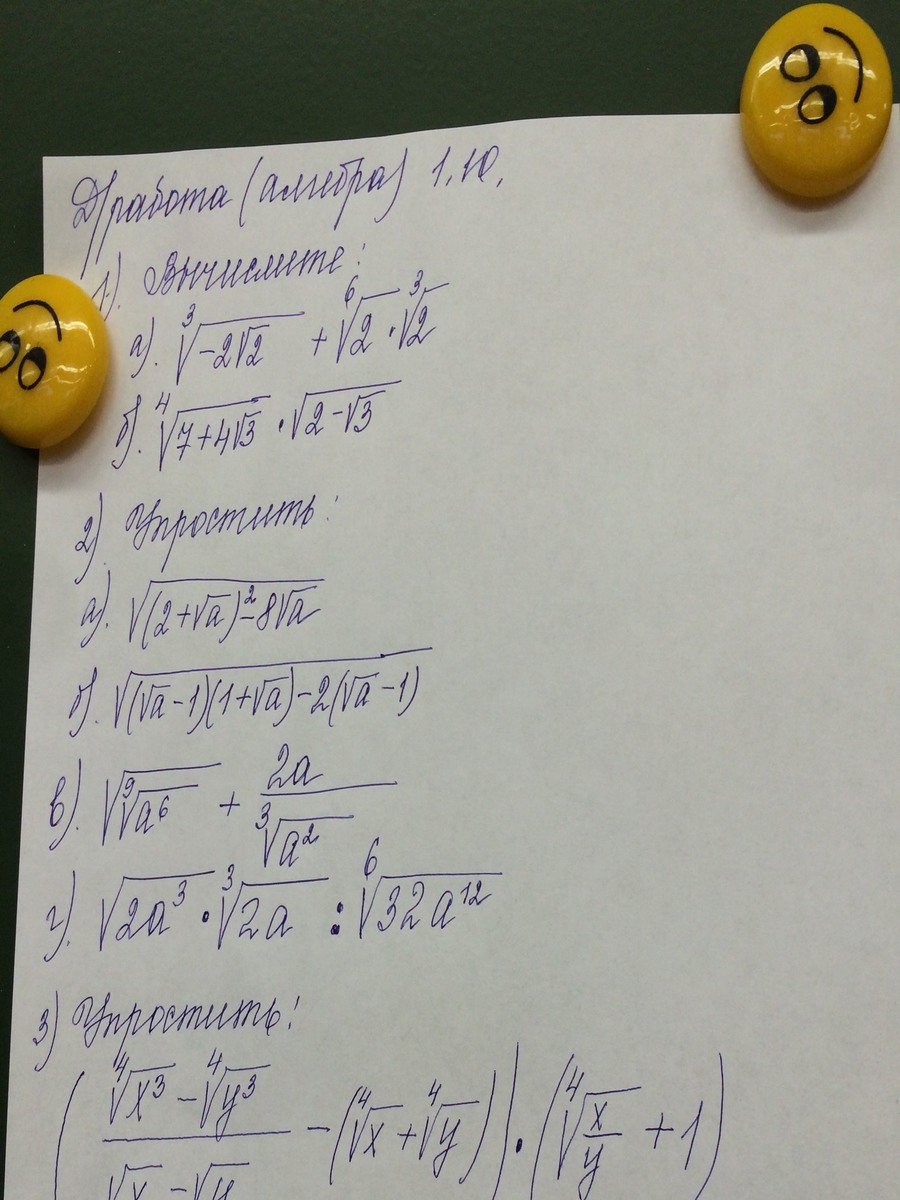 Д/работа (алгебра) 1.10.
1). Вычислите:
а). ∛(-2√2) + ⁶√2 · ∛2
б). ⁴√(7+4√3) · √(2-√3)
2) Упростить:
а). √((2+√a)²-8√a)
б). √((√a-1)(1+√a)-2(√a-1))
в). √(⁹√(a⁶)) + 2a/∛(a²)
г). √(2a³) · ∛(2a) : ⁶√(32a¹²)
3) Упростить:
((⁴√(x³) - ⁴√(y³))/(√x - √y) - (⁴√x + ⁴√y)) · (⁴√(x/y) + 1)